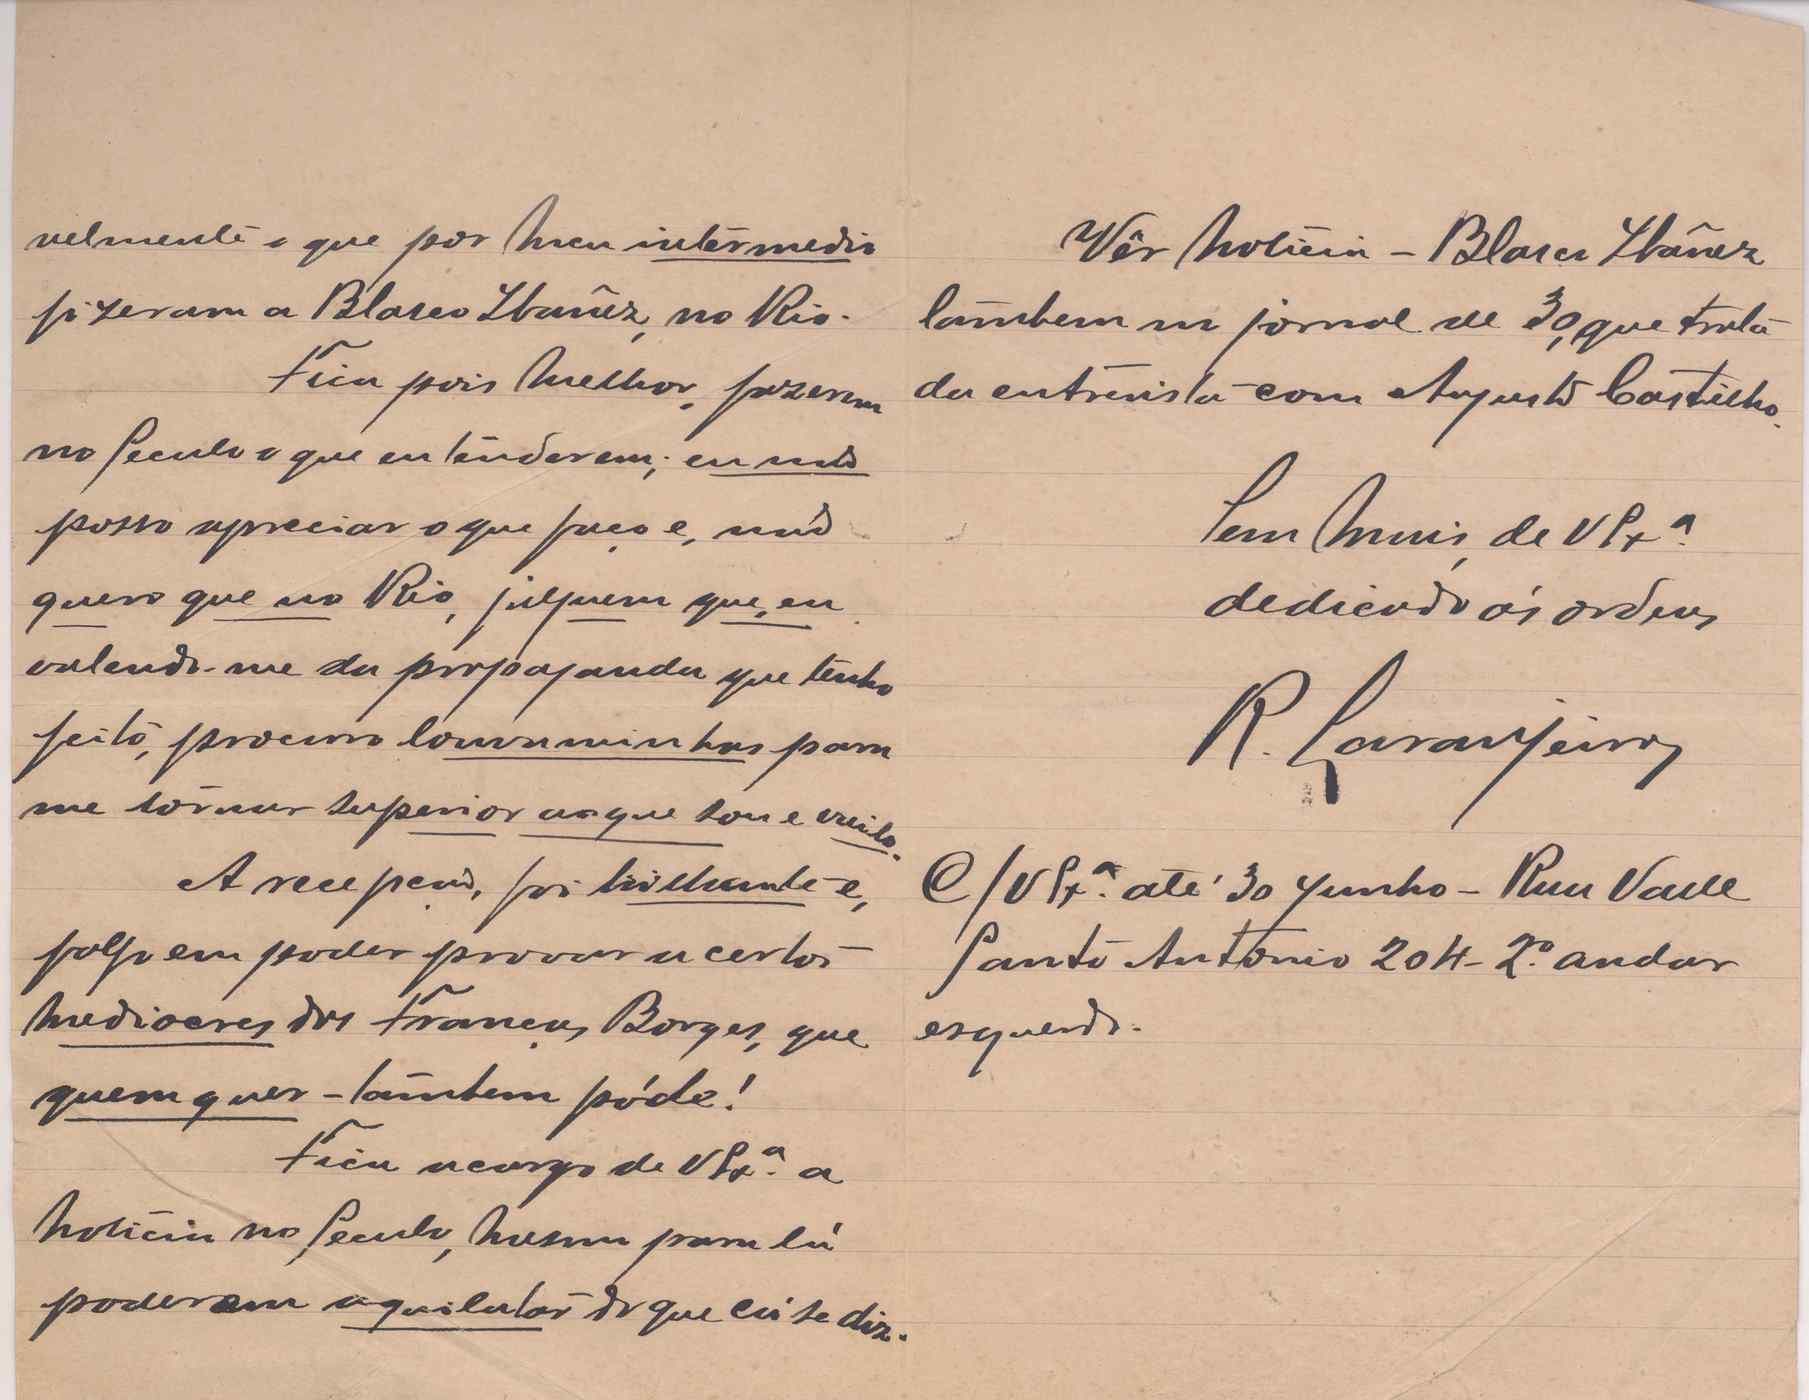 velmente o que por meu intermedio
fizeram a Blasco Ibañez, no Rio.
Fica pois melhor, fazerem
no Seculo o que entenderem; eu não
posso apreciar o que faço e, não
quero que no Rio, julguem que, eu
valendo-me da propaganda que tenho
feito, procuro louvaminhas para
me tornar superior ao que sou e valho.
A recepção, foi brilhante e,
folgo em poder provar a certos
mediocres dos Franças Borges, que
quem quer - tambem póde!
Fica a cargo de V Exª. a
noticia no Seculo, mesmo para lá
poderem aquilatar do que cá se diz.
Vêr noticia - Blasco Ibañez
tambem no jornal de 30, que trata
da entrevista com Augusto Castilho.
Sem mais, de V Exª.
dedicado ás ordens
R. Laranjeira
C/V Exª. até 30 Junho - Rua Valle
Santo Antonio 204 - 2º. andar
esquerdo.